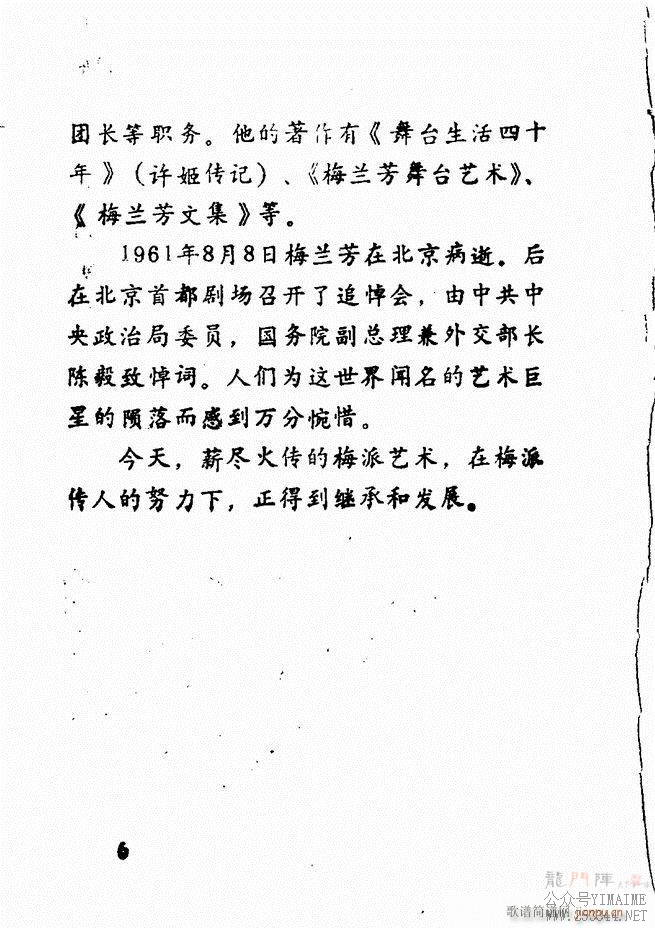 团长等职务。他的著作有《舞台生活四十
年》（许姬传记）、《梅兰芳舞台艺术》、
《梅兰芳文集》等。
1961年8月8日梅兰芳在北京病逝。后
在北京首都剧场召开了追悼会，由中共中
央政治局委员，国务院副总理兼外交部长
陈毅致悼词。人们为这世界闻名的艺术巨
星的陨落而感到万分惋惜。
今天，薪尽火传的梅派艺术，在梅派
传人的努力下，正得到继承和发展。
6
龍門陣
公众号YIMAIME
歌谱简谱网